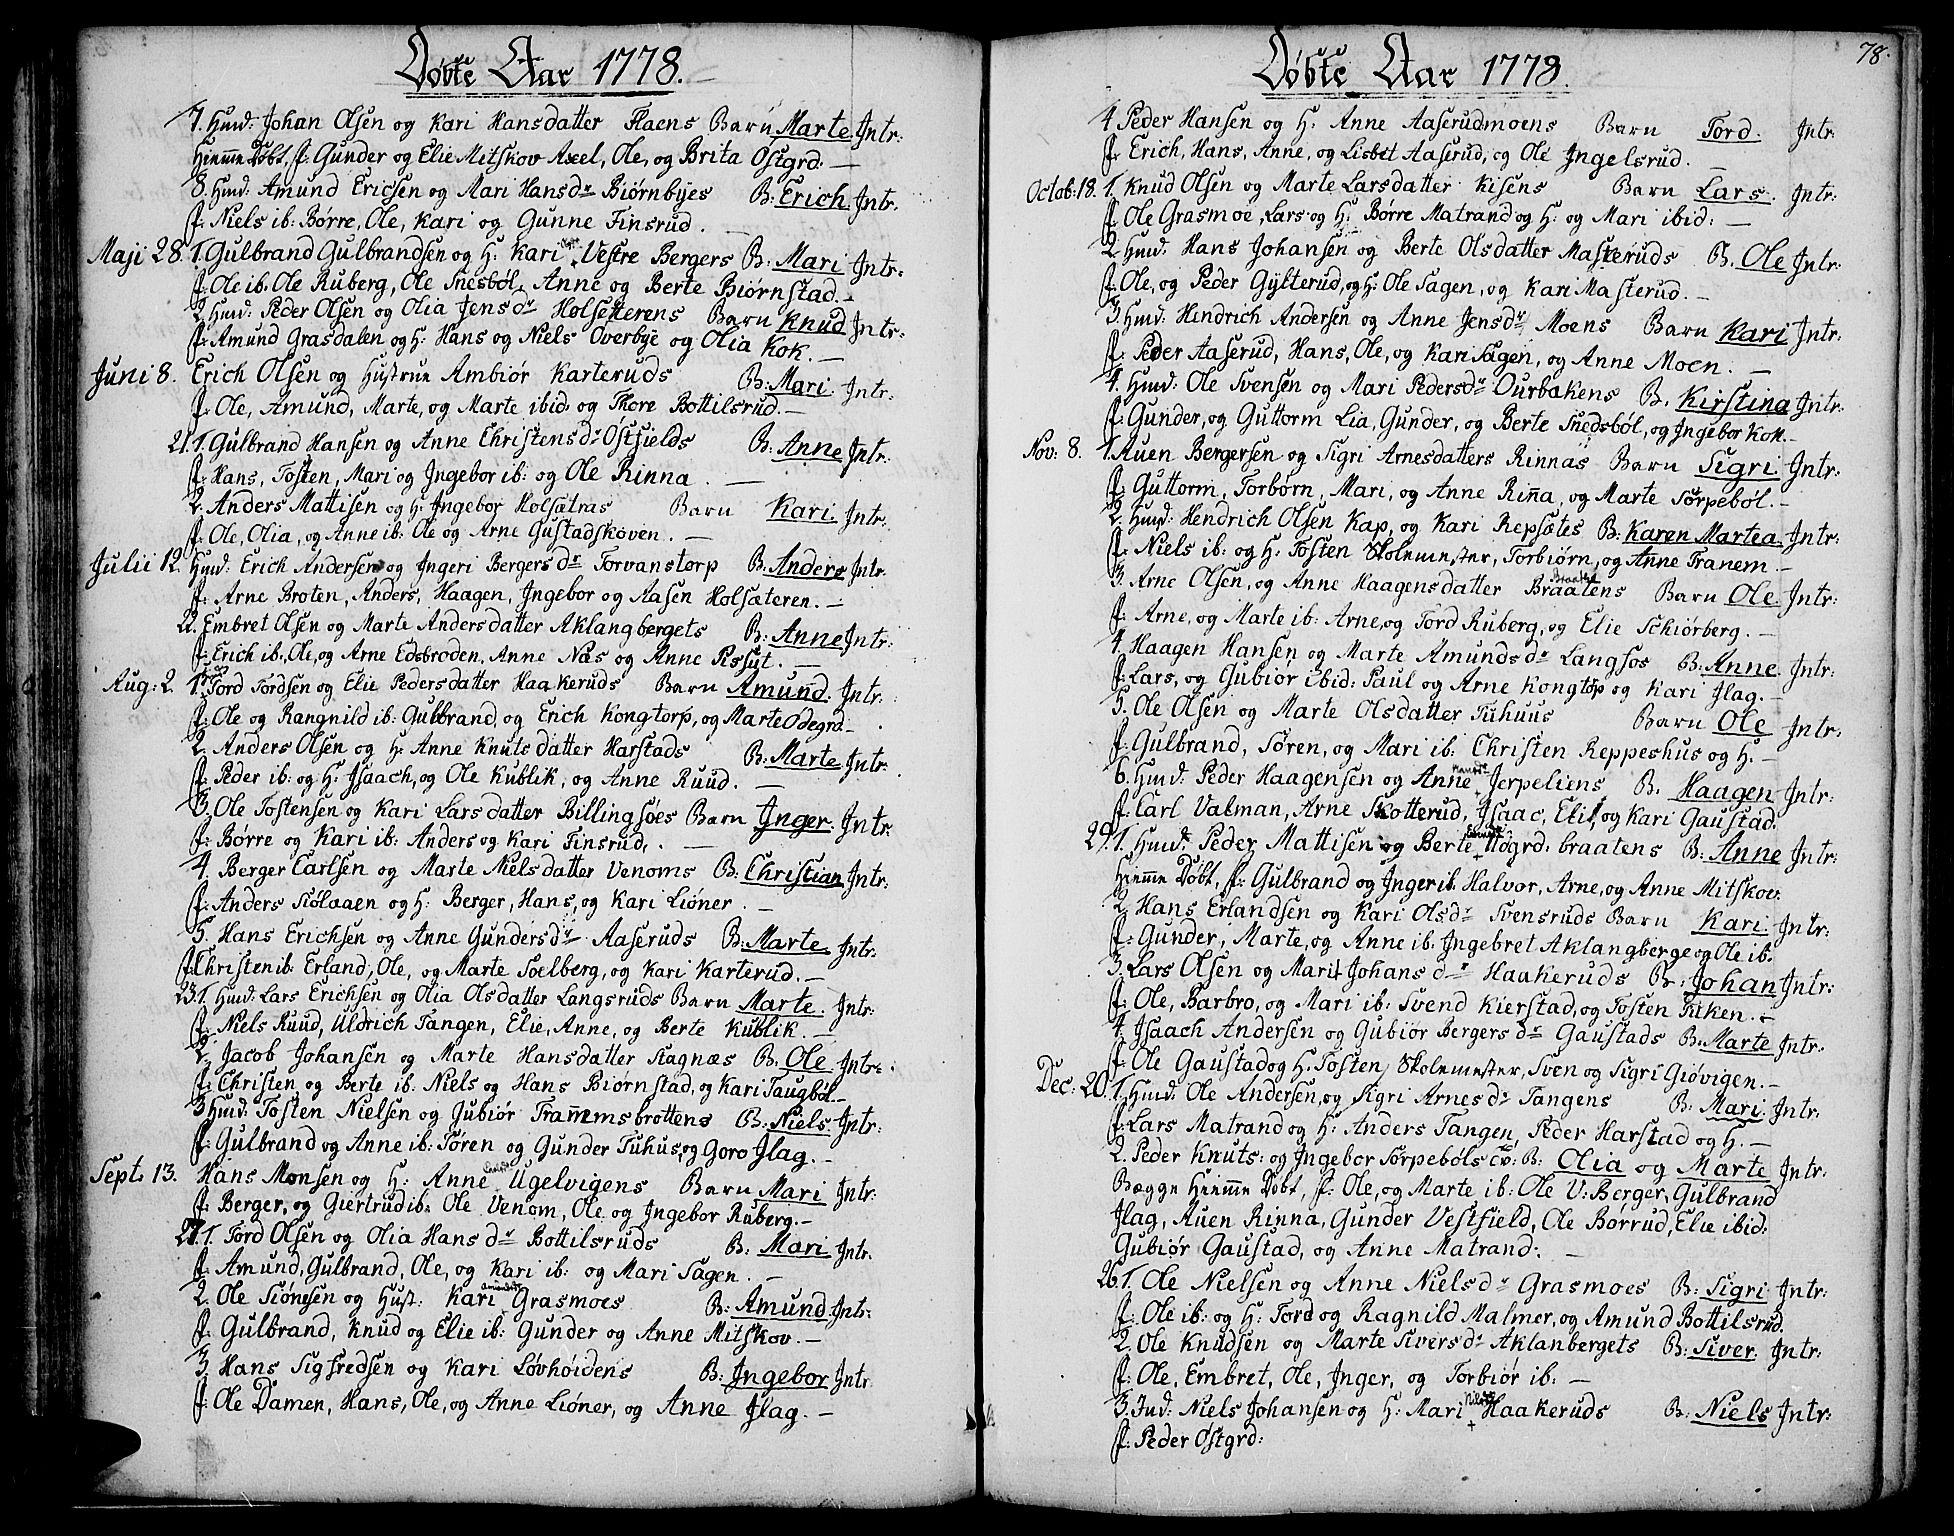 Døbte Aar 1778.
7. Huusd: Johan Olsen og Kari Hansdatter Flaens Barn Marte Intr:
Hiemme Døbt, f: Gunder og Elie Mitskov Axel, Ole, og Brita Ostgrd: —
8. Huusd: Amund Ericsen og Mari Hansdr Biørnbyes B: Erich Intr.
f: Niels ib: Børre, Ole, Kari og Gunne Finsrud.
Maji 28. 1. Gulbrand Gulbrandsen og H: Kari Vestre Bergers B: Mari Intr:
f: Ole ib. Ole Ruberg, Ole Snesbøl, Anne og Berte Biørnstad. —
2. Huusd: Peder Olsen og Olia Jensdr Holsetterens Barn Knud Intr:
f: Amund Grasdalen og H: Hans og Niels Overbye og Olia Kok. —
Juni 8. Erich Olsen og Hustrue Ambiør Karteruds B: Mari Intr:
f: Ole, Amund, Marte, og Marte ibid: og Thore Bottilsrud. —
21. 1. Gulbrand Hansen og Anne Christensdr Ostfields B: Anne Intr:
f: Hans, Tosten, Mari og Ingebor ib: og Ole Rinna. —
2. Anders Mattisen og H: Ingebor Holsætras Barn Kari. Intr:
f: Ole, Olia, og Anne ib: Ole og Arne Gustadskoven. —
Julii 12. Huusd: Erich Andersen og Ingeri Bergersdr Torvanstorp B: Anders Intr.
f: Arne Broten, Anders, Haagen, Ingebor og Aasen Holsæteren. —
22. Embret Olsen og Marte Andersdatter Aklangbergets B: Anne Intr:
f: Erich ib., Ole, og Arne Edsbroden. Anne Næs og Anne Pissut. —
Aug: 2. 1. Tord Tordsen og Elie Pedersdatter Haakeruds Barn Amund. Intr:
f: Ole og Rangnild ib: Gulbrand, og Erich Kongtorp, og Marte Ødegrd —
2. Anders Olsen og H: Anne Knutsdatter Harstads B: Marte Intr:
f: Peder ib: og H: Isaach, og Ole Kublik, og Anne Ruud. —
3. Ole Tostensen og Kari Larsdatter Billingsøes Barn Inger. Intr:
f: Børre og Kari ib: Anders og Kari Finsrud. —
4. Berger Carlsen og Marte Nielsdatter Venoms B: Christian Intr:
f: Anders Siølaaen og H: Berger, Hans, og Kari Liøner. —
5. Hans Erichsen og Anne Gundersdr Aaseruds B: Marte Intr:
f: Christen ib: Erland, Ole, og Marte Soelberg, og Kari Karterud. —
23. 1. Huusd: Lars Erichsen og Olia Olsdatter Langsruds Barn Marte. Intr:
f: Niels Ruud, Uldrich Tangen, Elie, Anne, og Berte Kublik. —
2. Jacob Johansen og Marte Hansdatter Skagnæs B: Ole Intr:
f: Christen og Berte ib: Niels og Hans Biørnstad, og Kari Taugbøl. —
3 Huusd: Tosten Nielsen og Gubiør Trammsbrottens B: Niels. Intr:
f: Gulbrand og Anne ib: Søren og Gunder Tuhus, og Goro Ilag. —
Sept: 13. Hans Monsen og H: Anne Ugelvigens Barn Mari Intr:
f: Berger, og Giertrud ib: Ole Venom, Ole og Ingebor Ruberg. —
27. 1. Tord Olsen og Olia Hansdr Bottilsruds B: Mari Intr.
f: Amund, Gulbrand, Ole, og Kari ib: og Mari Sagen. —
2. Ole Siønesen og Hust: Kari Grasmoes B: Amund Intr:
f: Gulbrand, Knud og Elie ib: Gunder og Anne Mitskov. —
3. Hans Sigfredsen og Kari Løvhøidens B: Ingebor Intr:
f: Ole Damen, Hans, Ole, og Anne Liøner, og Anne Ilag. —
Døbte Aar 1778.
78.
4 Peder Hansen og H: Anne Aaserudmoens Barn Tord. Intr:
f: Erich, Hans, Anne, og Lisbet Aaserud, og Ole Ingelsrud.
Octob: 18. 1. Knud Olsen og Marte Larsdatter Kisens Barn Lars. Intr:
f: Ole Grasmoe, Lars og H: Børre Matrand og H: og Mari ibid: —
2 Huusd: Hans Johansen og Berte Olsdatter Masteruds B. Ole Intr:
f: Ole, og Peder Gylterud, og H: Ole Sagen, og Kari Masterud. —
3 Huusd: Hindrich Andersen og Anne Jensdr Moens Barn Kari Intr:
f: Peder Aaserud, Hans, Ole, og Kari Sagen, og Anne Moen. —
4. Huusd: Ole Svensen og Mari Pedersdr Ourbakens B. Kirstina Intr:
f: Gunder, og Guttorm Lia, Gunder, og Berte Snedsbøl, og Ingebor Kok. —
Nov: 8. 1. Auen Bergersen og Sigri Arnesdatters Rinnas Barn Sigri Intr:
f: Guttorm, Torbørn, Mari, og Anne Rinna, og Marte Sørpebøl. —
2. Huusd: Hendrich Olsen Kap, og Kari Repsætes B: Karen Martea. Intr:
f: Niels ib: og H: Tosten Skolemester, Torbiørn, og Anne Tranem. —
3. Arne Olsen, og Anne Haagensdatter Braatens Barn Ole. Intr:
f: Arne, og Marte ib: Arne, og Tord Ruberg, og Elie Schiørberg. —
4. Haagen Hansen og Marte Amundsdr Langsøs B: Anne. Intr:
f: Lars, og Gubiør ibid: Paul og Arne Kongtorp og Kari Ilag. —
5. Ole Olsen og Marte Olsdatter Tuhuus Barn Ole Intr:
f: Gulbrand, Søren, og Mari ib: Christen Reppeshus og H: —
6. Huusd: Peder Haagensen og Anne Jerpeliens B. Haagen Intr:
f: Carl Valman, Arne Skotterud, Isaac, Elie, og Kari Gaustad.
29. 1. Huusd: Peder Mattisen og Berte Ødgrd: braatens B: Anne Intr:
Hiemme Døbt, f: Gulbrand og Inger ib. Halvor, Arne, og Anne Mitskov.
2. Hans Erlandsen og Kari Olsdr Svensruds Barn Kari. Intr:
f: Gunder, Marte, og Anne ib. Ingebret Aklangberge og Ole ib.
3. Lars Olsen og Marit Johansdr Haakeruds B: Johan Intr:
f: Ole, Barbro, og Mari ib: Svend Kierstad, og Tosten Fiken. —
4. Isaach Andersen og Gubiør Bergersdr Gaustads B: Marte Intr:
f: Ole Gaustad og H. Tosten Skolemester, Sven og Sigri Giøvigen. —
Dec: 20. 1. Huusd: Ole Andersen, og Sigri Arnesdr Tangens B: Mari Intr:
f: Lars Matrand og H: Anders Tangen, Peder Harstad og H. —
2. Peder Knuts: og Ingebor Sørpebøls B: Olia og Marte Intr:
Begge Hiemme Døbt, f: Ole, og Marte ib: Ole V: Berger, Gulbrand
Ilag, Auen Rinna, Gunder Vestfield, Ole Børrud, Elie ibid:
Gubiør Gaustad, og Anne Matrand: —
26. 1. Ole Nielsen og Anne Nielsdr Grasmoes B: Sigri Intr:
f: Ole ib: og H: Tord og Ragnild Malmer, og Amund Bottilsrud.
2. Ole Knudsen og Marte Siversdr Aklanbergets B: Siver. Intr:
f: Ole, Embret, Ole, Inger, og Torbiør ib: —
3. Ind: Niels Johansen og H: Mari Haakeruds B: Niels Intr:
f: Peder Østgrd: